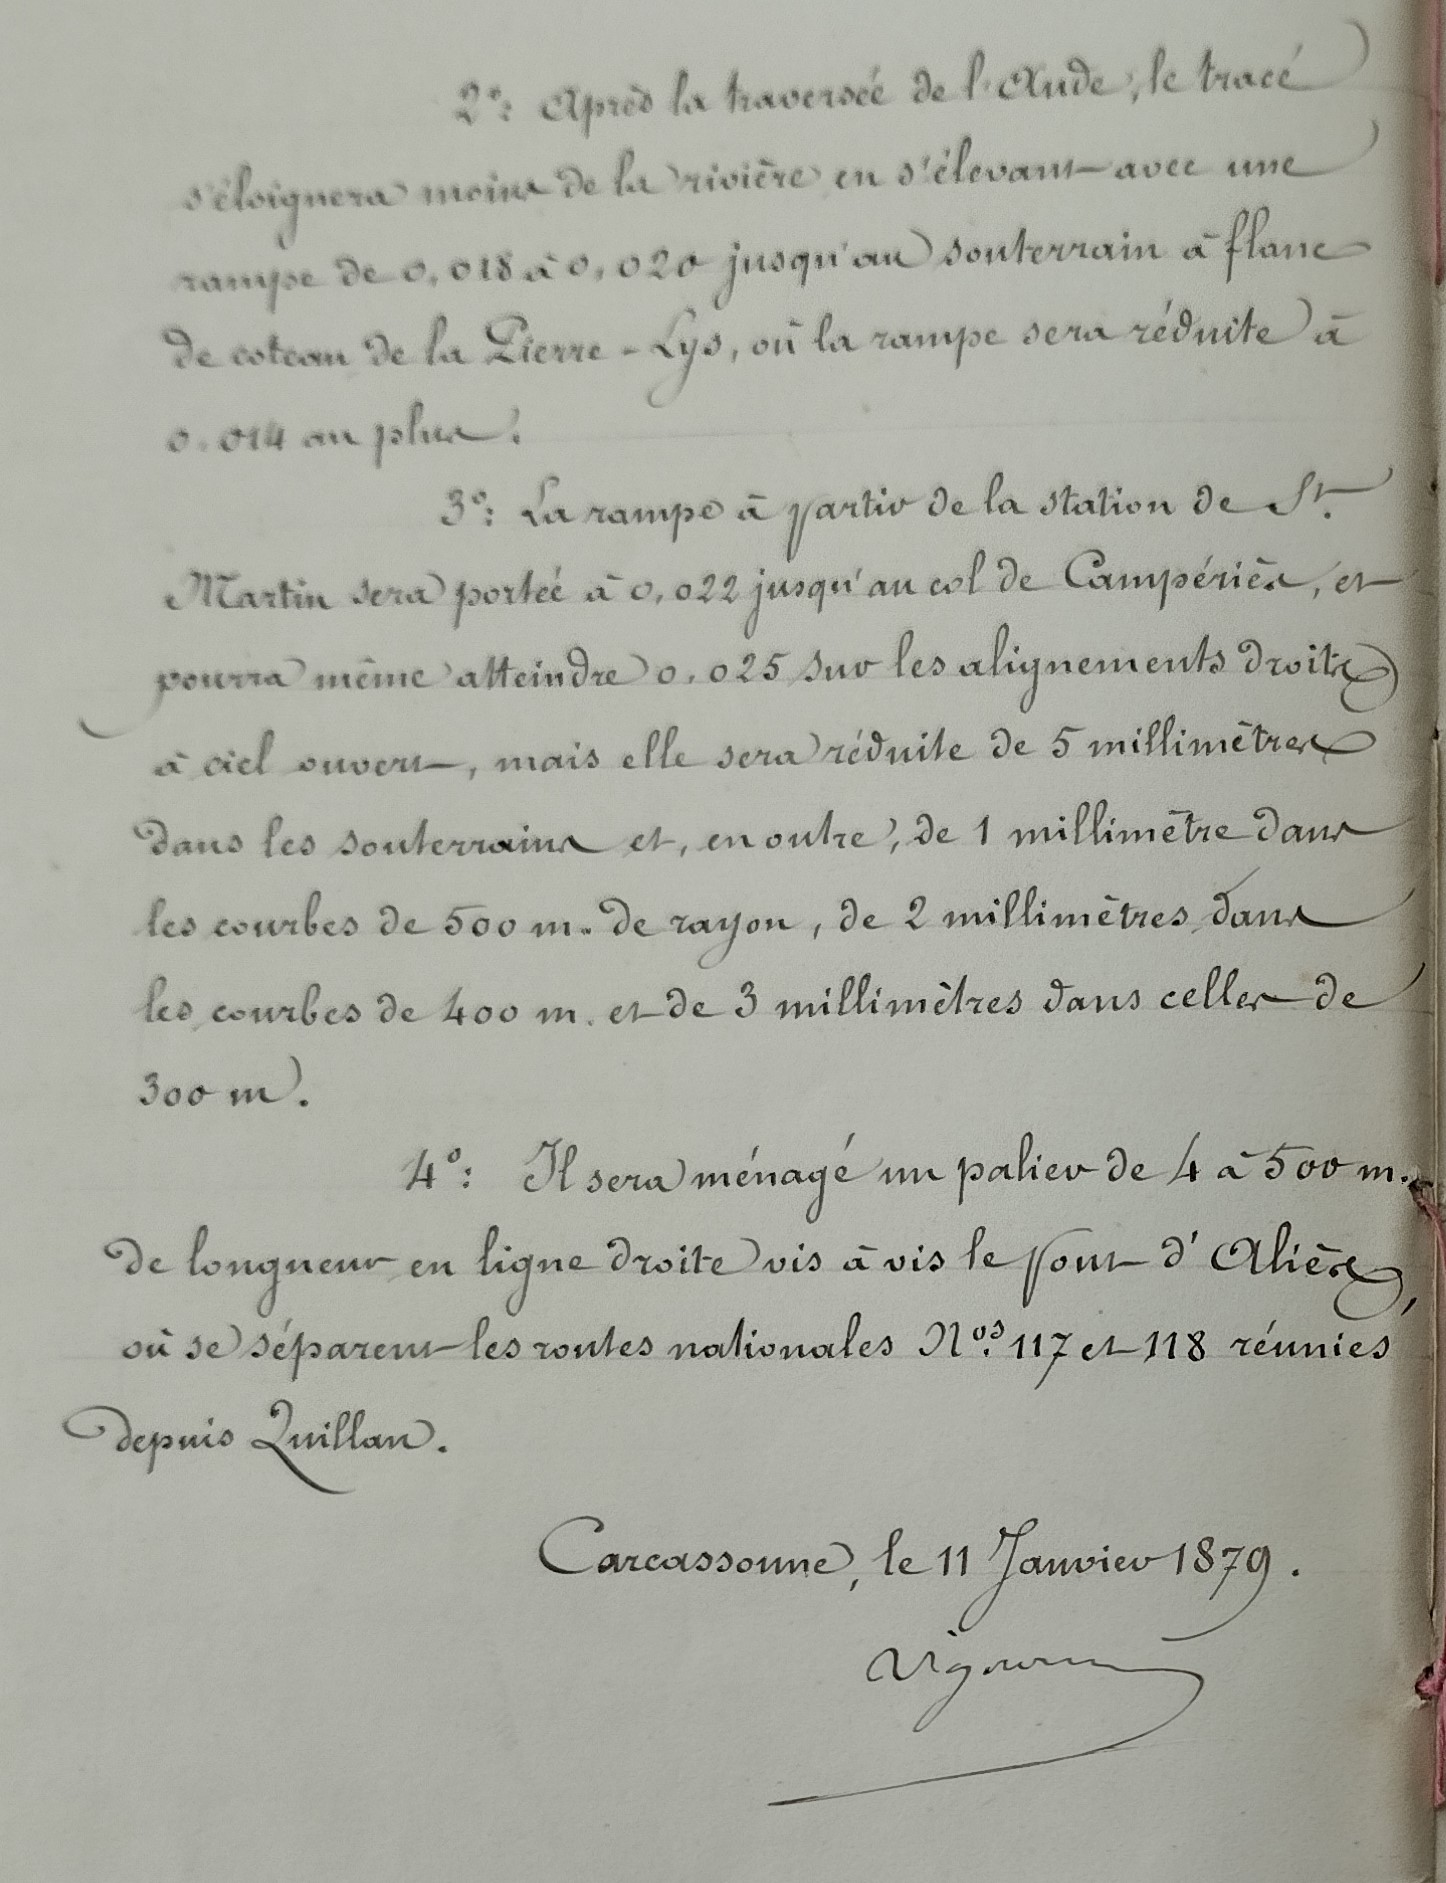 2°: Après la traversée de l'Aude, le tracé
s'éloignera moins de la rivière en s'élevant avec une
rampe de 0,018 à 0,020 jusqu'au souterrain à flanc
de coteau de la Pierre-Lys, où la rampe sera réduite à
0.014 au plus.
3°: La rampe à partir de la station de St.
Martin sera portée à 0,022 jusqu'au col de Campériès, et
pourra même atteindre 0,025 sur les alignements droits
à ciel ouvert, mais elle sera réduite de 5 millimètres
dans les souterrains et, en outre, de 1 millimètre dans
les courbes de 500 m. de rayon, de 2 millimètres dans
les courbes de 400 m. et de 3 millimètres dans celles de
300 m.
4°: Il sera ménagé un palier de 4 à 500 m.
de longueur en ligne droite vis à vis le pont d'Aliès,
où se séparent les routes nationales Nos. 117 et 118 réunies
depuis Quillan.
Carcassonne, le 11 Janvier 1879.